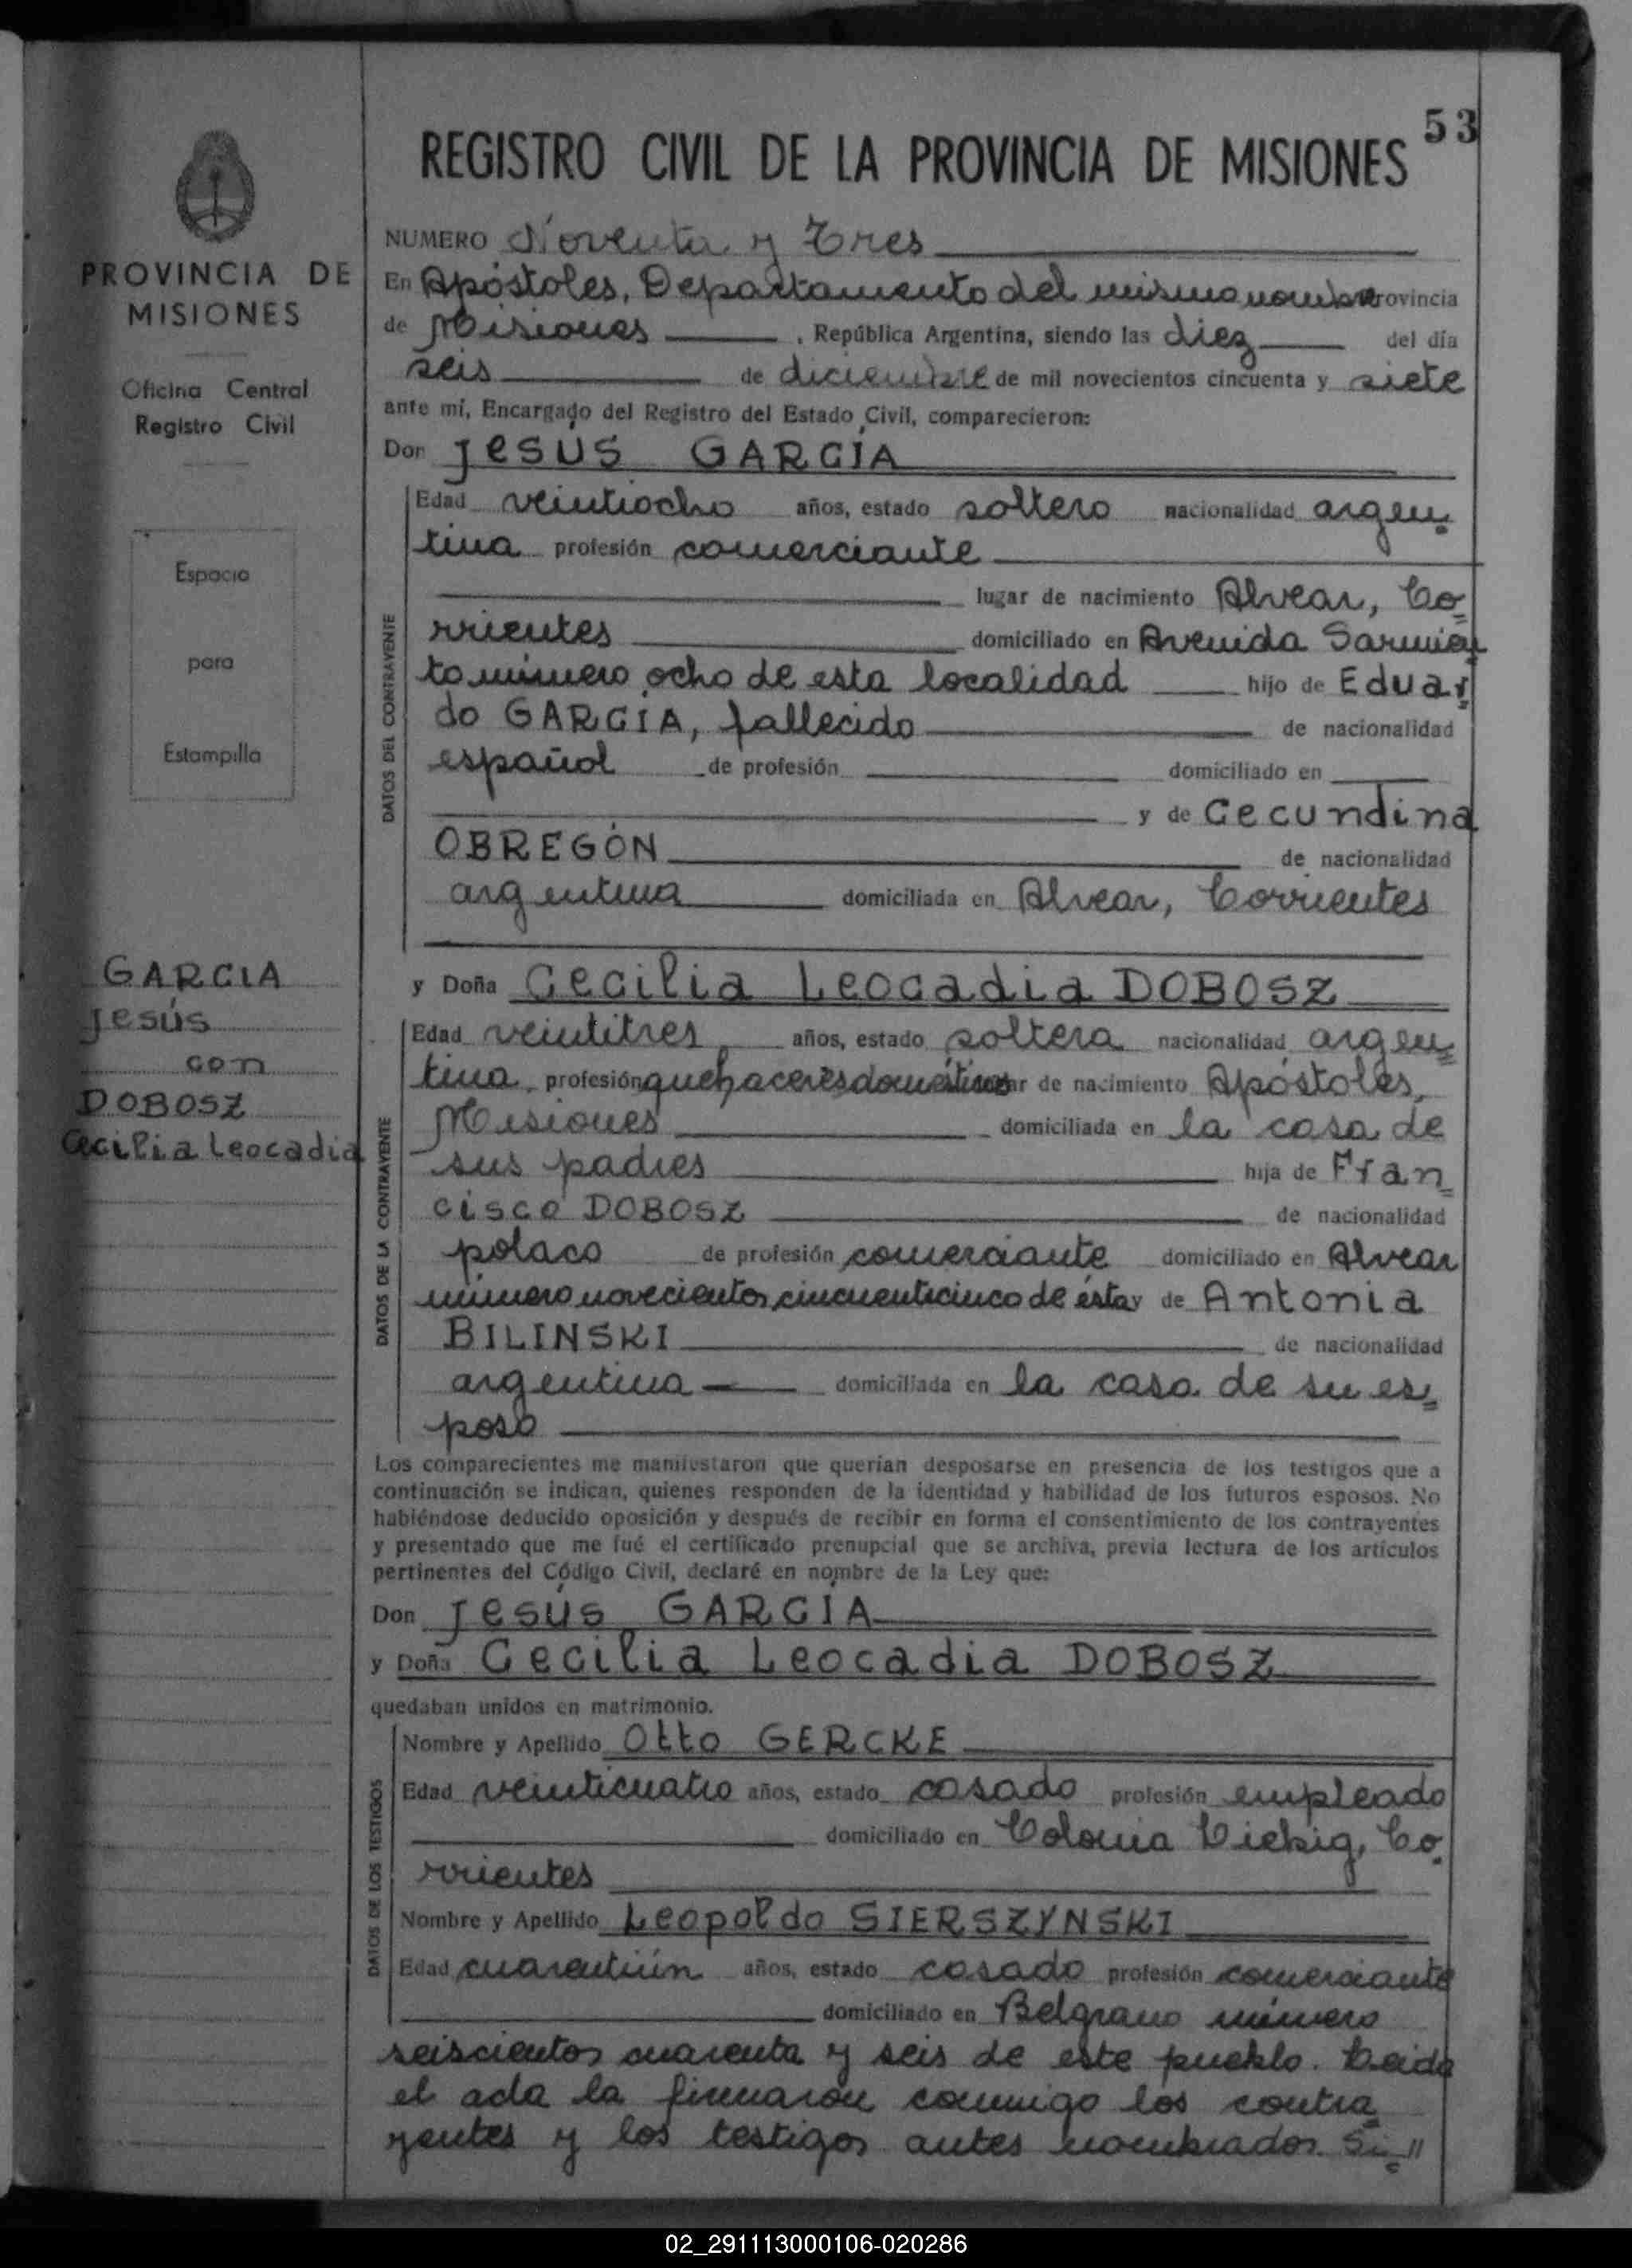 53
REGISTRO CIVIL DE LA PROVINCIA DE MISIONES
PROVINCIA DE
MISIONES
Oficina Central
Registro Civil
Espacio
para
Estampilla
GARCIA
Jesús
con
DOBOSZ
Cecilia Leocadia
NUMERO Noventa y Tres
En Apóstoles, Departamento del mismo nombre Provincia
de Misiones , República Argentina, siendo las diez del día
seis de diciembre de mil novecientos cincuenta y siete
ante mí, Encargado del Registro del Estado Civil, comparecieron:
Don Jesús GARCÍA
DATOS DEL CONTRAYENTE
Edad veintiocho años, estado soltero nacionalidad argen=
tina profesión comerciante
lugar de nacimiento Alvear, Co=
rrientes domiciliado en Avenida Sarmien
to número ocho de esta localidad hijo de Eduar=
do GARCÍA, fallecido de nacionalidad
español de profesión domiciliado en
y de Cecundina
OBREGÓN de nacionalidad
argentina domiciliada en Alvear, Corrientes
y Doña Cecilia Leocadia DOBOSZ
DATOS DE LA CONTRAYENTE
Edad veintitres años, estado soltera nacionalidad argen=
tina profesión quehaceres domésticos lugar de nacimiento Apóstoles,
Misiones domiciliada en la casa de
sus padres hija de Fran=
cisco DOBOSZ de nacionalidad
polaco de profesión comerciante domiciliado en Alvear
número novecientos cincuenticinco de ésta y de Antonia
BILINSKI de nacionalidad
argentina domiciliada en la casa de su es=
poso
Los comparecientes me manifestaron que querían desposarse en presencia de los testigos que a
continuación se indican, quienes responden de la identidad y habilidad de los futuros esposos. No
habiéndose deducido oposición y después de recibir en forma el consentimiento de los contrayentes
y presentado que me fué el certificado prenupcial que se archiva, previa lectura de los artículos
pertinentes del Código Civil, declaré en nombre de la Ley que:
Don Jesús GARCÍA
y Doña Cecilia Leocadia DOBOSZ
quedaban unidos en matrimonio.
DATOS DE LOS TESTIGOS
Nombre y Apellido Otto GERCKE
Edad veinticuatro años, estado casado profesión empleado
domiciliado en Colonia Liebig, Co=
rrientes
Nombre y Apellido Leopoldo SIERSZYNSKI
Edad cuarentiún años, estado casado profesión comerciante
domiciliado en Belgrano número
seiscientos cuarenta y seis de este pueblo. Leida
el acta la firmaron conmigo los contra=
yentes y los testigos antes nombrados. Si= //
02_291113000106-020286